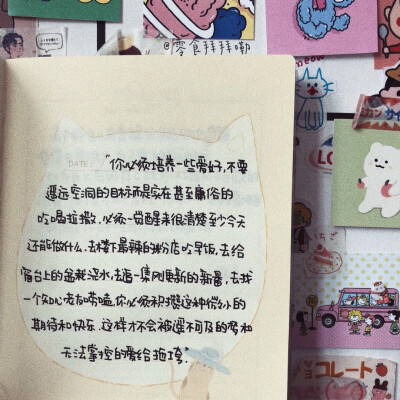 @零食拜拜嘞
DATE:
"你必须培养一些爱好，不要
遥远空洞的目标而是实在甚至庸俗的
吃喝拉撒，必须一觉醒来很清楚至少今天
还能做什么.去楼下最辣的粉店吃早饭.去给
窗台上的盆栽浇水，去追一集刚更新的新番，去找
一个DIY老友唠嗑，你必须积攒这种微小的
期待和快乐.这样才不会被遥不可及的梦和
无法掌控的爱给拖垮."
MEOW
ミカン
サイ
LO
いちご
コレート